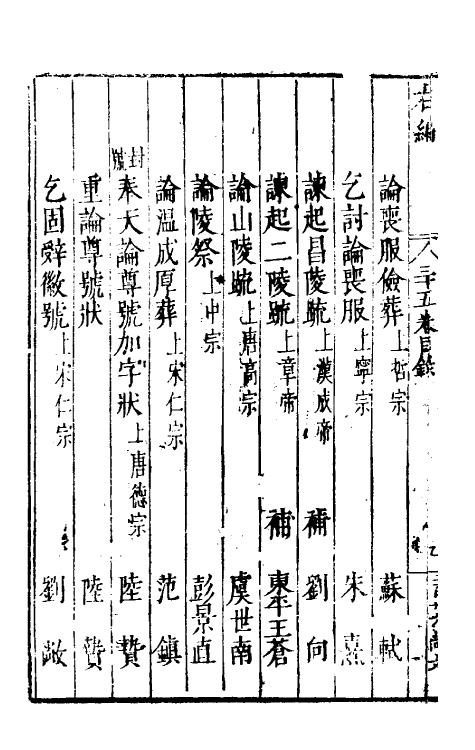 右編
三十五卷目錄
論喪服儉葬上哲宗 蘇軾
乞討論喪服上寧宗 朱熹
諫起昌陵䟽上漢成帝 補 劉向
諫起二陵䟽上章帝 補 東平王蒼
論山陵䟽上唐高宗 虞世南
論陵祭上中宗 彭景直
論溫成厚葬上宋仁宗 范鎮
封號
奉天論尊號加字狀上唐德宗 陸贄
重論尊號狀 陸贄
乞固辭徽號上宋仁宗 劉敞